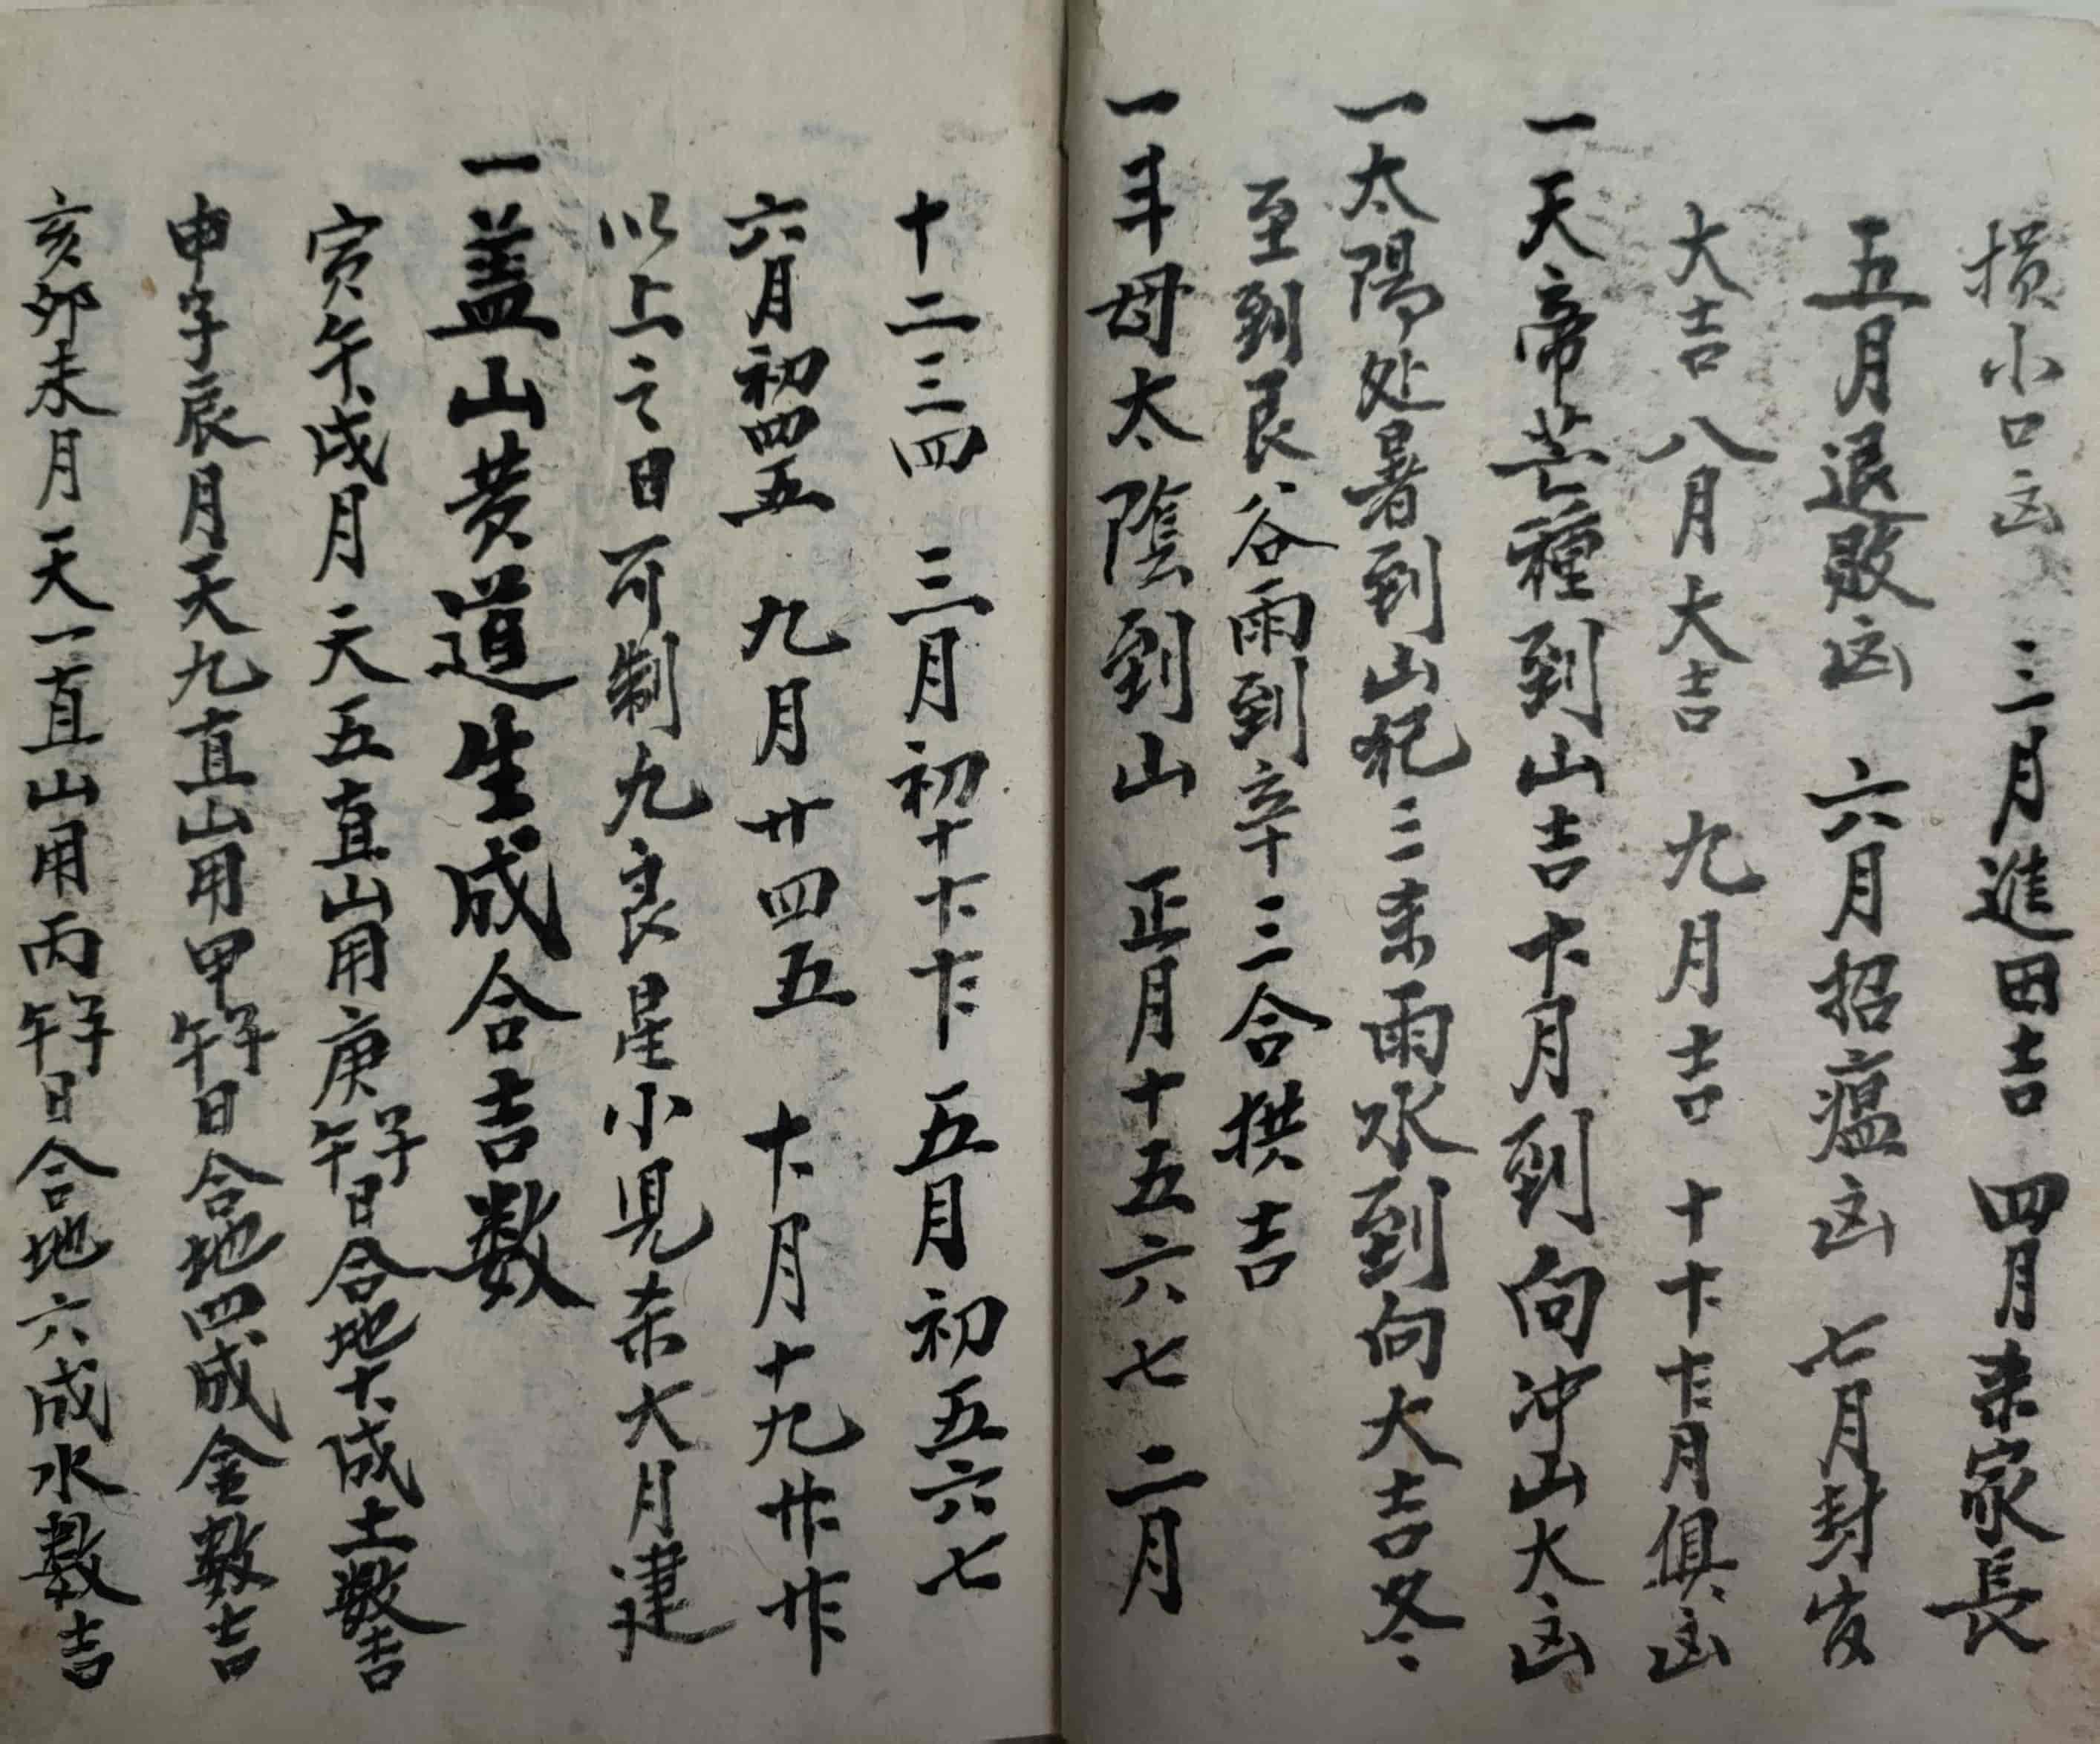 损小口凶 三月進田吉 四月杀家長
五月退敗凶 六月招瘟凶 七月封官
大吉 八月大吉 九月吉 十𠦃𠦄月俱凶
一天帝芒種到山吉𠦃月到向冲山大凶
一太陽处暑到山犯三杀雨水到向大吉冬
至到艮谷雨到辛三合拱吉
一斗母太陰到山 正月十五六七 二月
十二三四 三月初十 五月初五六七
六月初四五 九月廿四五 月十九
以上之日可制九良星小児杀大月建
一蓋山黄道生成合吉数
寅午戌月天五直山用庚子午日合地十成土数吉
申子辰月天九直山用甲子午日合地四成金数吉
亥卯未月天一直山用丙子午日合地六成水数吉